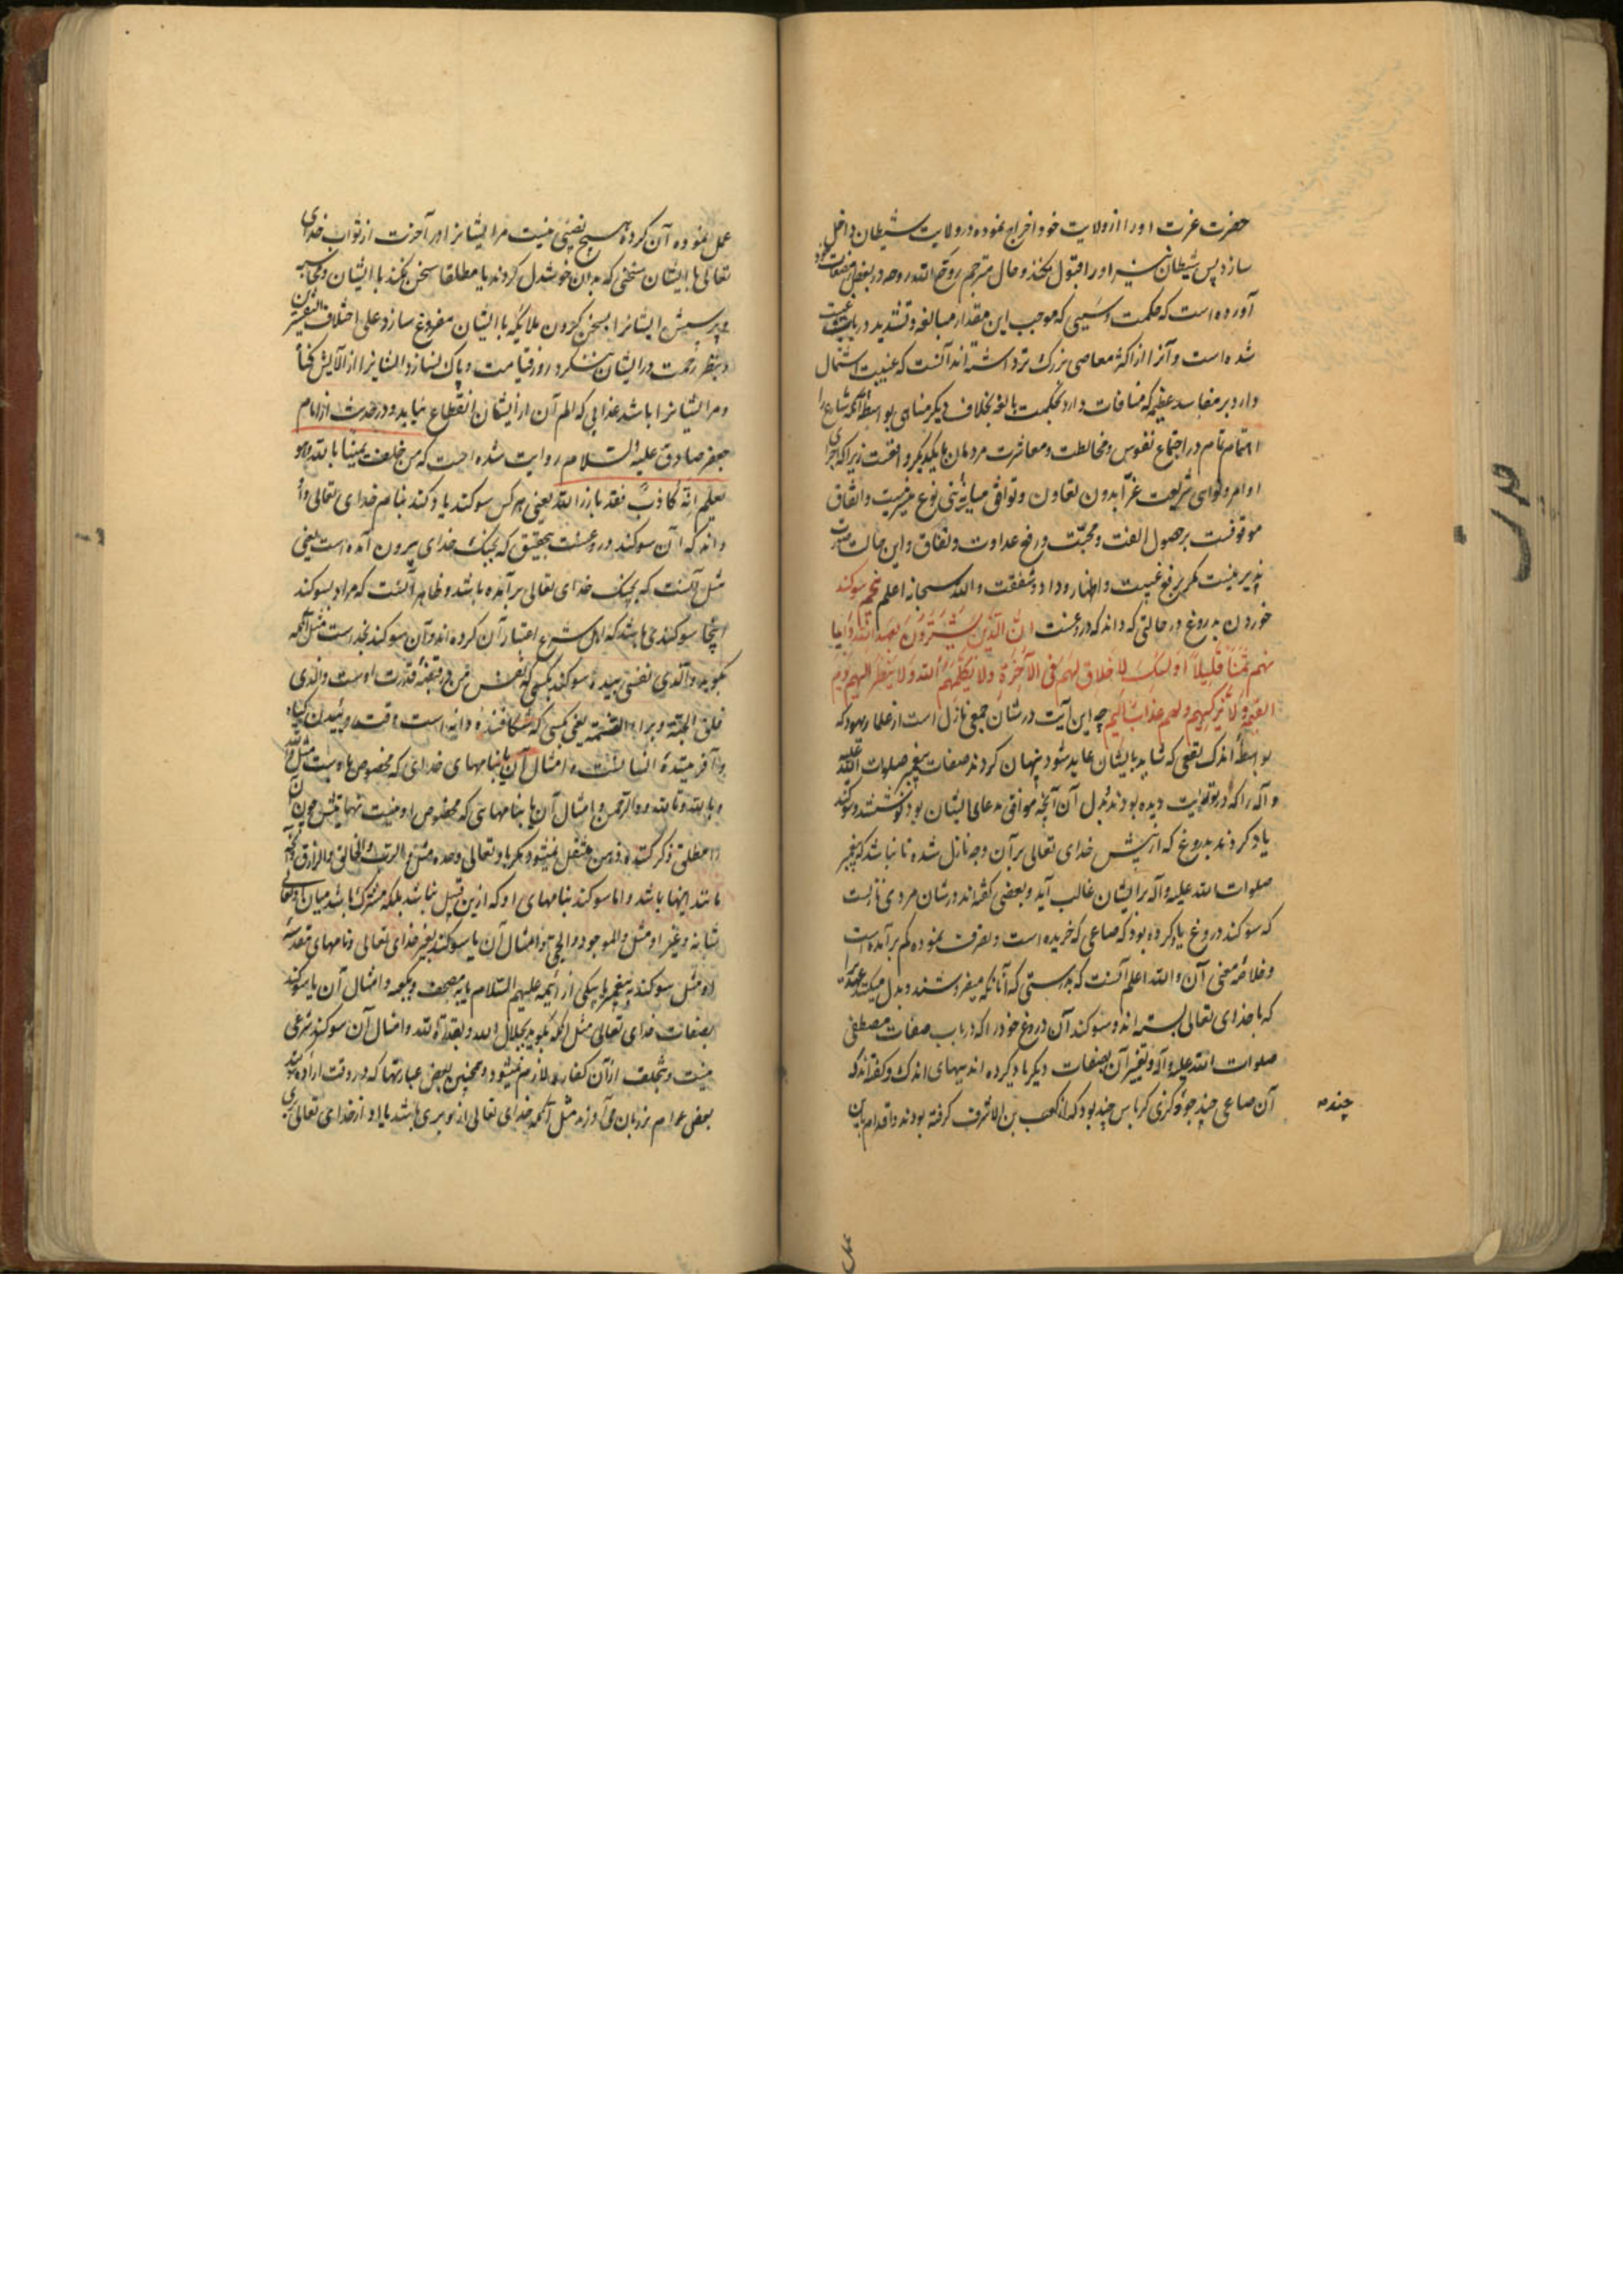 حضرت عزت او را از ولایت خود اخراج نموده در ولایت شیطان داخل
سازد پس شیطان نیز او را قبول نکند و حال مترجم روّح الله روحه در بعض مصنفات خود
آورده است که حکمت و سببی که موجب این مقدار مبالغه و تشدید در باب غیبت
شده است و آنرا از اکثر معاصی بزرگ تر داشته اند آنست که غیبت اشتمال
دارد بر مفاسد عظیمه که منافات دارد بحکمت بالغه بخلاف دیگر مناهی بواسطه آنکه شارع را
اهتمام تمام در اجتماع نفوس و مخالطت و معاشرت مردمان با یکدیگر واقعست زیرا که اجرای
اوامر و نواهی شریعت غرّا بدون تعاون و توافق میانه بنی نوع میسر نیست و اتفاق
موقوفست بر حصول الفت و محبّت و رفع عداوت و نفاق و این حالت صورت
پذیر نیست مگر برفع غیبت و اظهار وداد و شفقت و الله سبحانه اعلم پنجم سوکند
خوردن بدروغ در حالتی که داند که دروغست انّ الّذین یشترون بعهد الله و ایما
نهم ثمنا قلیلا اولئک لا خلاق لهم فی الآخرة و لا یکلّمهم الله و لا ینظر الیهم یوم
القیمة و لا یزکیهم و لهم عذاب الیم چه این آیت در شان جمعی نازل است از علماء یهود که
بواسطه اندک نفعی که شاید بایشان عاید شود پنهان کردند صفات پیغمبر صلوات الله علیه
و آله را که در توریت دیده بودند و بدل آن آنچه موافق مدعای ایشان بود نوشتند و سوکند
یاد کردند بدروغ که از پیش خدای تعالی بر آن وجه نازل شده تا نباشد که پیغمبر
صلوات الله علیه و آله بر ایشان غالب آید و بعضی گفته اند در شان مردی نازلست
که سوکند دروغ یاد کرده بود که متاعی که خریده است و تصرف نموده کم برآمده است
و خلاصه معنی آن و الله اعلم آنست که بدرستی که آنانکه میفروشند و بدل میکنند عهدی را
که با خدای تعالی بسته اند و سوکند آن دروغ خود را که در باب صفات مصطفی
صلوات الله علیه و آله و تغییر آن بصفات دیگر یاد کرده اند ببهای اندک و گفته اند که
آن متاعی چند جو و گزی کرباس چند بود که از کعب بن الاشرف گرفته بودند و اقدام باین
چند
عمل نموده آن گروه هیچ نصیبی نیست مر ایشانرا در آخرت از ثواب خدای
تعالی با ایشان سخنی که بدان خوشدل گردند یا مطلقا سخن نکند با ایشان و محاسبه
و پرسش ایشانرا بسخن کردن ملائکه با ایشان مفروغ سازد علی اختلاف التفسیرین
و بنظر رحمت در ایشان ننگرد روز قیامت و پاک نسازد ایشانرا از آلایش گناه
و مر ایشانرا باشد عذابی که الم آن از ایشان انقطاع نیابد و در حدیث از امام
جعفر صادق علیه السلام روایت شده است که من حلف یمینا بالله و هو
یعلم انّه کاذب فقد بارز الله یعنی هر کس سوکند یاد کند بنام خدای تعالی و
داند که آن سوکند دروغست بتحقیق که بجنک خدای بیرون آمده است یعنی
مثل آنست که بجنک خدای تعالی برآمده باشد و ظاهر آنست که مراد بسوکند
اینجا سوکندی باشد که اهل شرع اعتبار آن کرده اند و آن سوکند بخداست مثل آنکه
بگوید و الّذی نفسی بیده سوکند بکسی که نفس من در قبضه قدرت اوست و الّذی
فلق الحبّة و برأ النسمة یعنی بکسی که شکافنده دانه است وقت روئیدن گیاه
و آفریننده انسانست و امثال آن یا بنامهای خدای که مخصوص باوست مثل و الله
و بالله و تالله و و الرّحمن و امثال آن یا بنامهائی که مخصوص او نیست نهایتش چون آن
را مطلق ذکر کنند ذهن منتقل نمیشود مگر باو تعالی وحده مثل و الرّب و الخالق و الرازق و آنچه
مانند اینها باشد و اما سوکند بنامهای او که ازین قبیل نباشد بلکه مشترک باشد میان او تعالی
شانه و غیر او مثل و الموجود و الحیّ و امثال آن یا سوکند بغیر خدای تعالی و نامهای مقدسه
او مثل سوکند به پیغمبر یا بیکی از ائمه علیهم السلام یا بمصحف و بکعبه و امثال آن یا سوکند
بصفات خدای تعالی مثل آنکه بگوید بجلال الله و بقدرة الله و امثال آن سوکند شرعی
نیست و بتخلف از آن کفاره لازم نمیشود و همچنین بعض عبارتها که در وقت اراده سوکند
بعض عوام بر زبان می آورند مثل آنکه خدای تعالی از تو بری باشد یا او از خدای تعالی بری